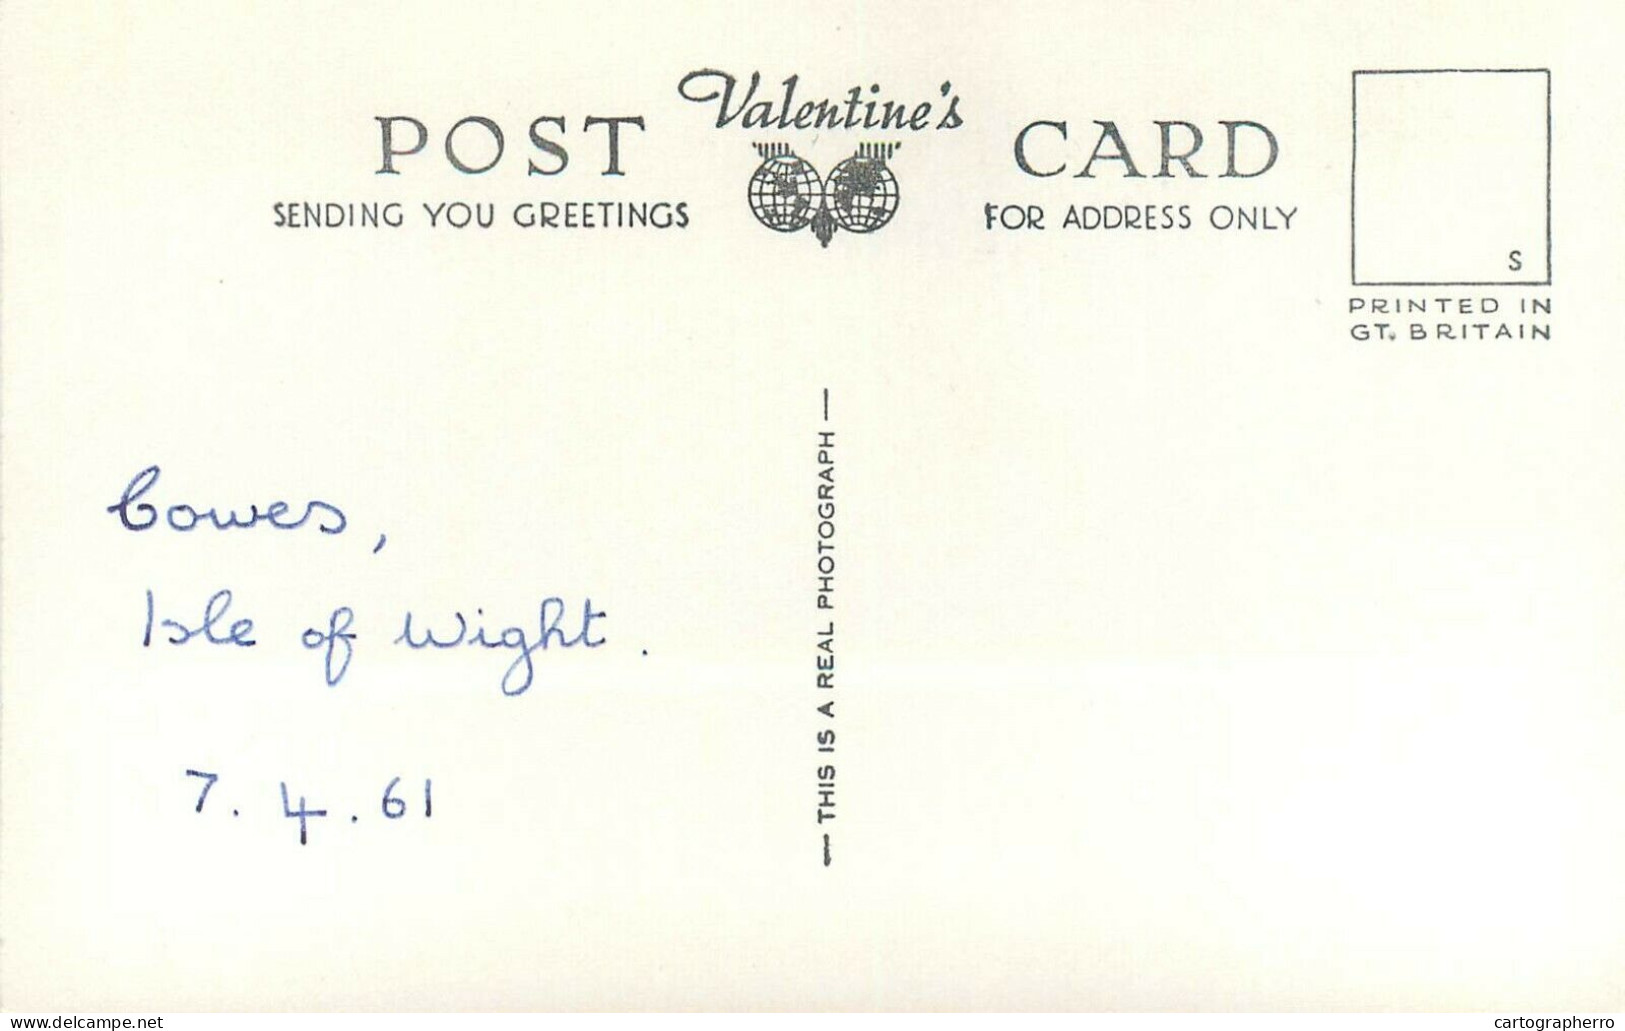 Valentine's
POST CARD
SENDING YOU GREETINGS
FOR ADDRESS ONLY
S
PRINTED IN
GT. BRITAIN
Cowes,
Isle of Wight.
7.4.61
— THIS IS A REAL PHOTOGRAPH —
www.delcampe.net
cartographerro